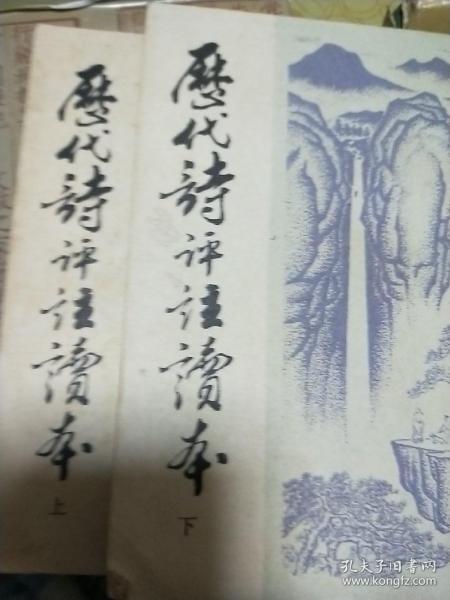 歷代詩評註讀本
上
歷代詩評註讀本
下
孔夫子旧书网
www.kongfz.com